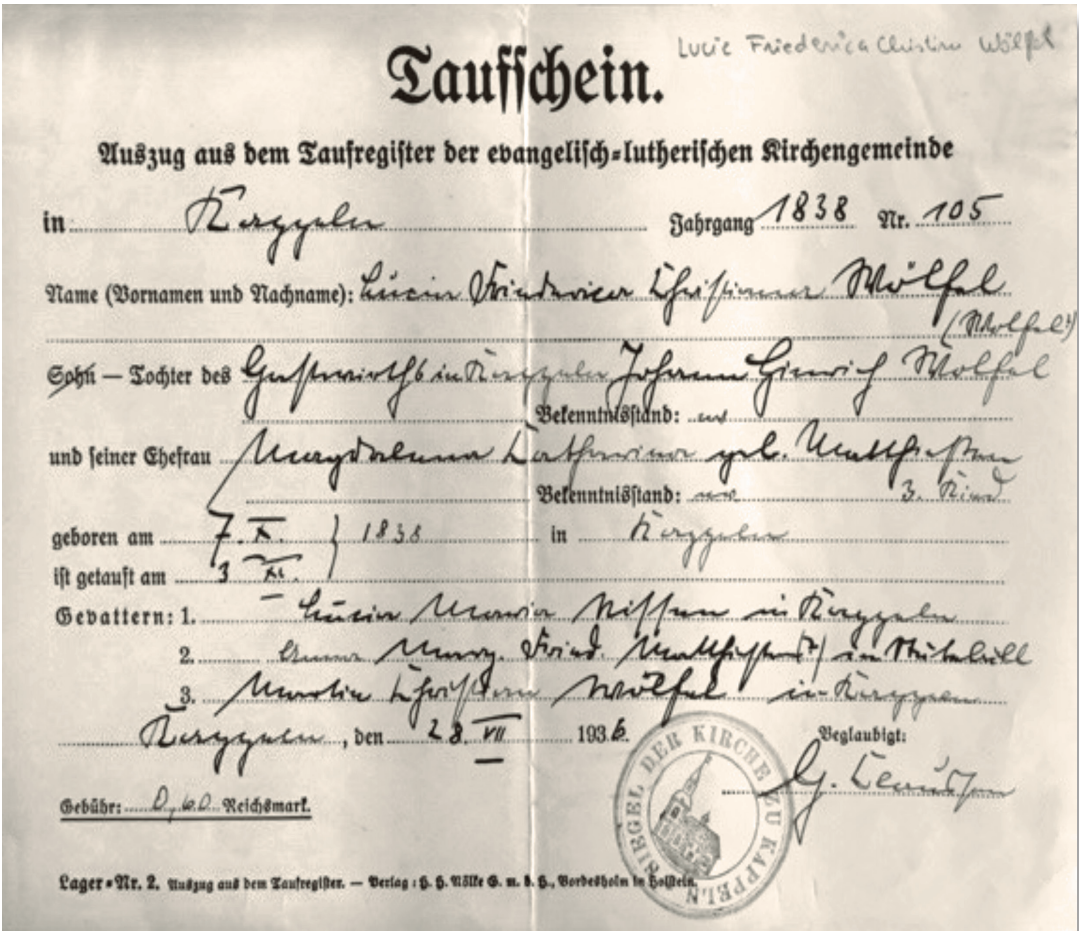 Lucie Friederica Christina Wölfel
Taufschein.
Auszug aus dem Taufregister der evangelisch-lutherischen Kirchengemeinde
in Kappeln Jahrgang 1838 Nr. 105
Name (Vornamen und Nachname): Lucia Friederica Christiana Wölfel
(Wolfel?)
Sohn — Tochter des Gastwirths in Kappeln Johann Hinrich Wölfel
Bekenntnisstand:
und seiner Ehefrau Magdalena Catharina geb. Matthiesen
Bekenntnisstand: 3. Kind
geboren am 7. X. } 1838 in Kappeln
ist getauft am 3 XI.
Gevattern: 1. Lucia Maria Nissen in Kappeln
2. Anna Marg. Fried. Matthiesen (?) in
3. Martin Christian Wölfel in Kappeln
Kappeln, den 28. VII 1936.
Beglaubigt:
G. Claussen
Gebühr: 0,60 Reichsmark.
SIEGEL DER KIRCHE ZU KAPPELN
Lager-Nr. 2. Auszug aus dem Taufregister. — Verlag: H. H. Nölke G. m. b. H., Bordesholm in Holstein.